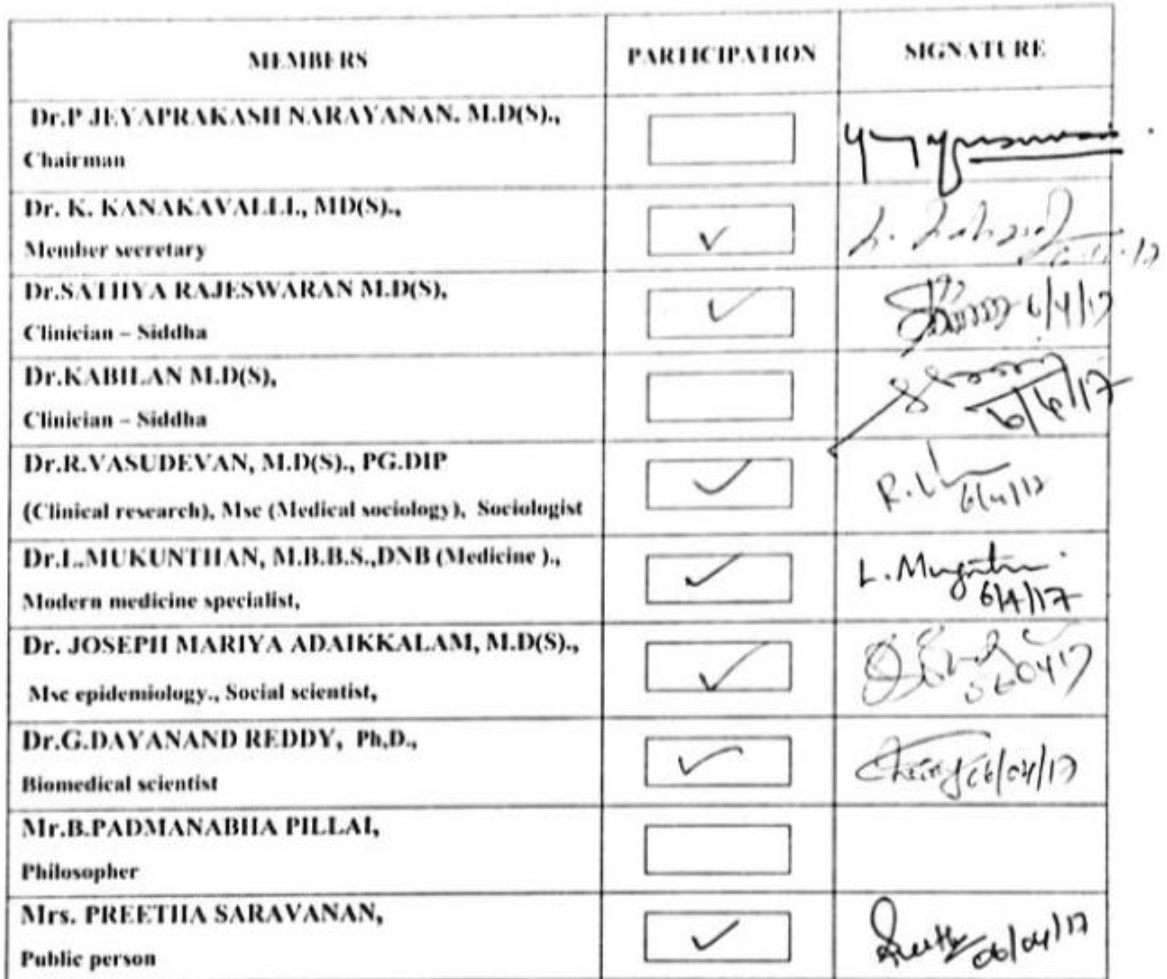 MEMBERS PARTICIPATION SIGNATURE
Dr.P JEYAPRAKASH NARAYANAN. M.D(S).,
Chairman
Dr. K. KANAKAVALLI., MD(S).,
Member secretary
Dr.SATHYA RAJESWARAN M.D(S),
Clinician – Siddha
6/4/17
Dr.KABILAN M.D(S),
Clinician – Siddha
6/4/17
Dr.R.VASUDEVAN, M.D(S)., PG.DIP
(Clinical research), Msc (Medical sociology), Sociologist
6/4/17
Dr.L.MUKUNTHAN, M.B.B.S.,DNB (Medicine ).,
Modern medicine specialist,
6/4/17
Dr. JOSEPH MARIYA ADAIKKALAM, M.D(S).,
Msc epidemiology., Social scientist,
Dr.G.DAYANAND REDDY, Ph.D.,
Biomedical scientist
06/04/17
Mr.B.PADMANABHA PILLAI,
Philosopher
Mrs. PREETHA SARAVANAN,
Public person
06/04/17